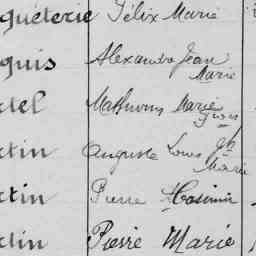 quéterie Félix Marie
quis Alexandre Jean
Marie
tel Mathurin Marie
tin Auguste Louis
Marie
tin Pierre Casimir
tin Pierre Marie